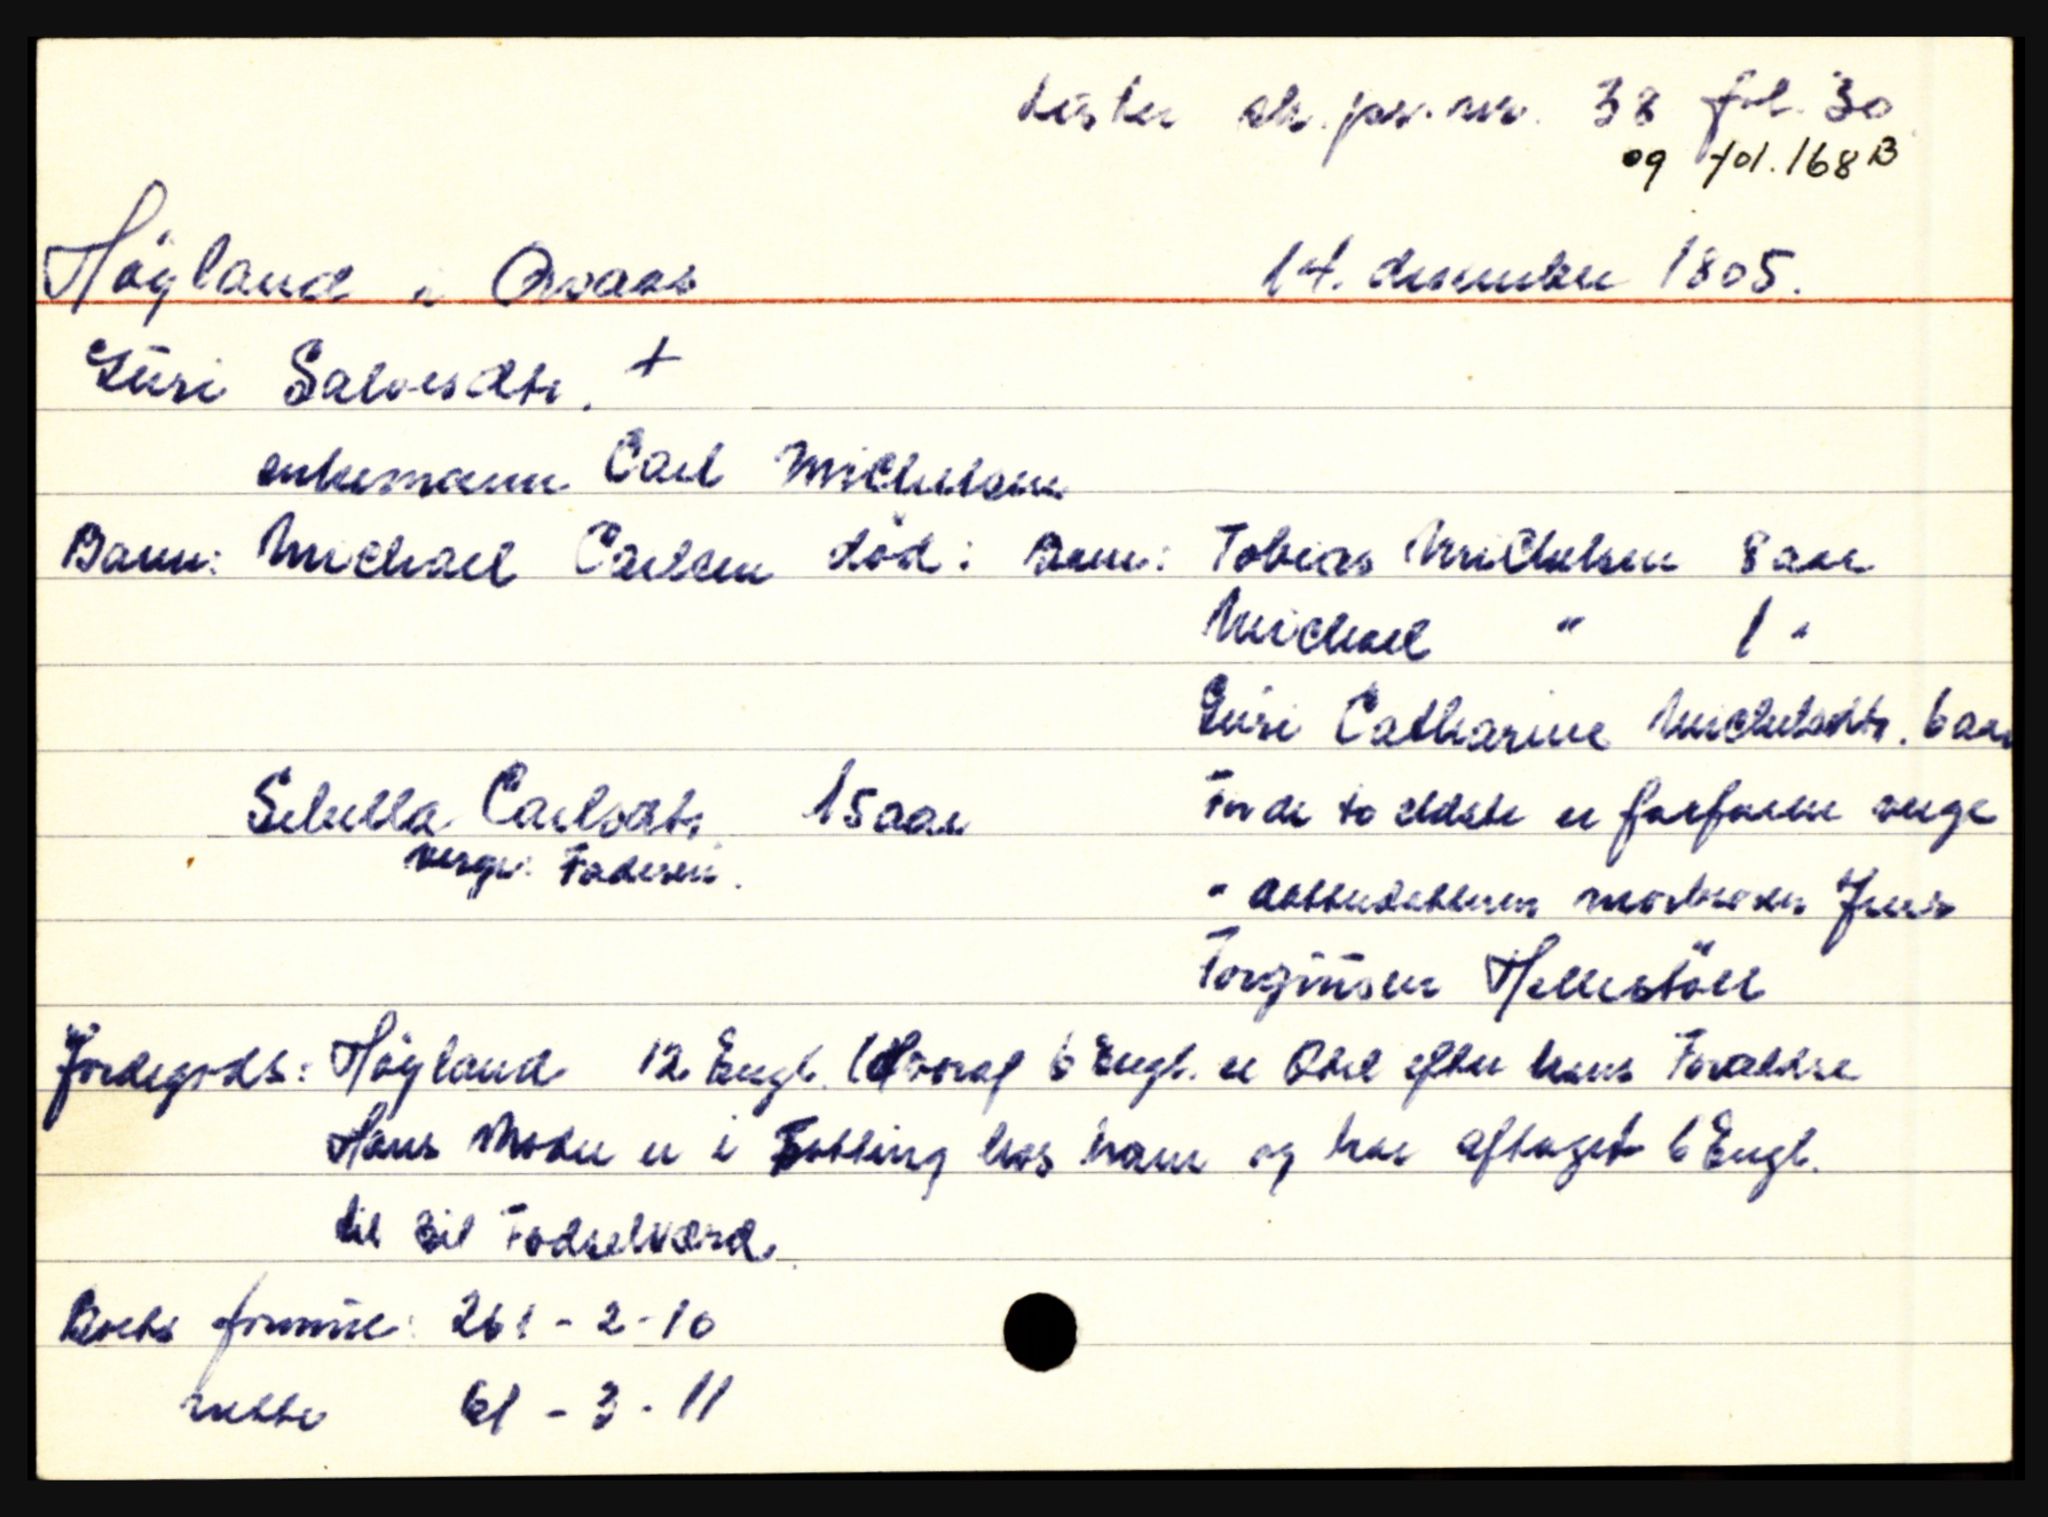 Lister sk. pr. nr. 38 fol. 30
og fol. 168 B
Höyland i Qvaas 14. desember 1805.
Güri Salvesdtr. +
enkemann Carl Michelsen
Barn: Michael Carlsen död: Barn: Tobias Michelsen 8 aar
Michael " 1 "
Güri Catharine Michelsdtr. 6 aar
Sibella Carlsdtr 15 aar For de to eldste er farfaren verge
verge: Faderen. " datterdatteren morbroder Jens
Torgiüsen Hellestöll
Jordegods: Höyland 12 Engl. (Hvoraf 6 Engl. er Odel efter hans Forældre
Hans Moder er i hos ham og har aftaget 6 Engl.
til sit Födselvord.
Boets formüe: 261 - 2 - 10
netto 61 - 3 - 11